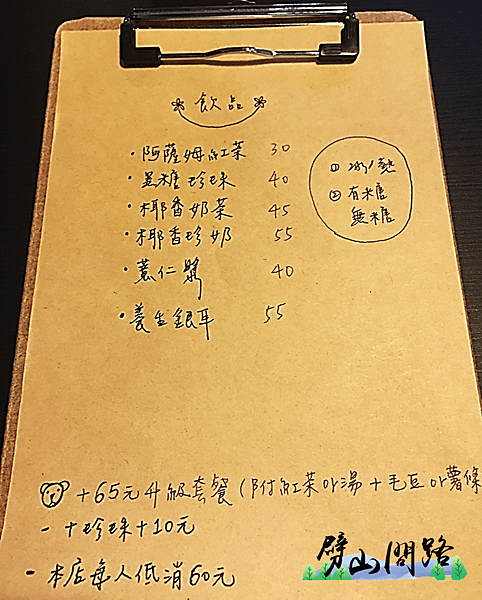 飲品
·阿薩姆紅茶 30
·黑糖珍珠 40
·椰香奶茶 45
·椰香珍奶 55
·薏仁漿 40
·養生銀耳 55
① 冰/熱
② 有糖
無糖
+65元升級套餐(附紅茶or湯+毛豆or薯條
-+珍珠+10元
-本店每人低消60元
劈山問路